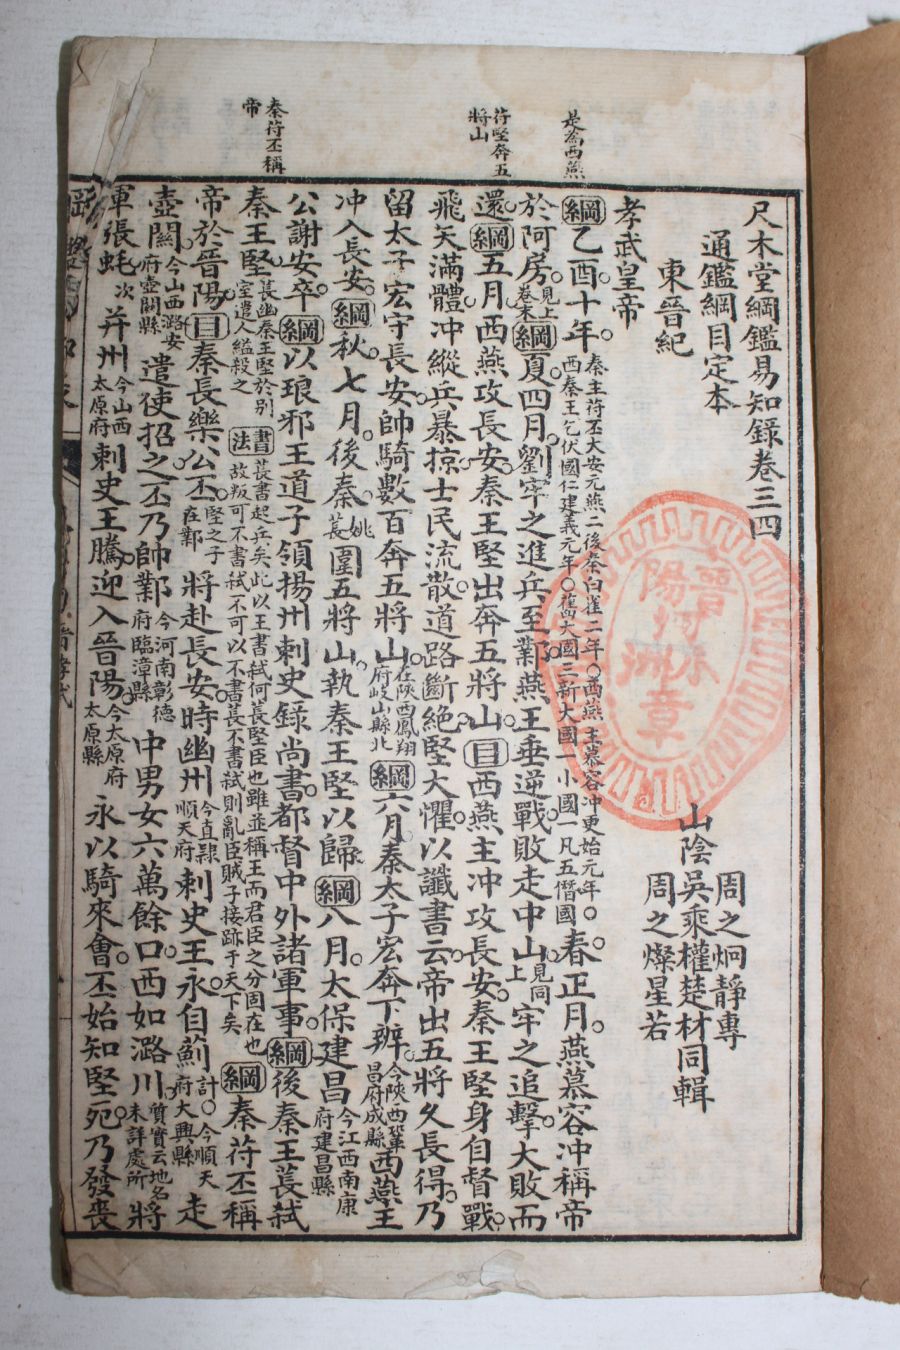 是為西燕
苻堅奔五
將山
秦苻丕稱
帝
尺木堂綱鑑易知錄卷三四
通鑑綱目定本 周之炯靜專
東晉紀 山陰吳乘權楚材同輯
孝武皇帝 周之燦星若
綱乙酉十年。秦主苻丕大安元燕二後秦白雀二年。○西燕主慕容冲更始元年。西秦王乞伏國仁建義元年。○舊大國三新大國一小國一凡五僭國。春正月。燕慕容冲稱帝
於阿房。見上卷末綱夏四月。劉牢之進兵至鄴。燕王垂逆戰。敗走中山。見同上牢之追擊。大敗而
還。綱五月。西燕攻長安。秦王堅出奔五將山。目西燕主冲攻長安。秦王堅身自督戰。
飛矢滿體。冲縱兵暴掠。士民流散。道路斷絕。堅大懼。以讖書云。帝出五將久長得。乃
留太子宏守長安。帥騎數百奔五將山。在陝西鳳翔府岐山縣北綱六月。秦太子宏奔下辨。今陝西鞏昌府成縣西燕主
冲入長安。綱秋。七月。後秦姚萇圍五將山。執秦王堅以歸。綱八月。太保建昌今江西南康府建昌縣
公謝安卒。綱以琅邪王道子領揚州刺史錄尚書。都督中外諸軍事。綱後秦王萇弒
秦王堅。萇幽秦王堅於別室遣人縊殺之書法萇書起兵矣此以王書弒何萇堅臣也雖並稱王而君臣之分固在也故叛可不書弒不可以不書萇不書弒則亂臣賊子接跡于天下矣綱秦苻丕稱
帝於晉陽。目秦長樂公丕。堅之子在鄴將赴長安。時幽州今直隸順天府刺史王永。自薊計。○今順天府大興縣走
壺關。今山西潞安府壺關縣遣使招之。丕乃帥鄴今河南彰德府臨漳縣中男女六萬餘口。西如潞川。質實云地名未詳處所將
軍張蚝次并州今山西太原府刺史王騰。迎入晉陽。今太原府太原縣永以騎來會。丕始知堅死。乃發喪